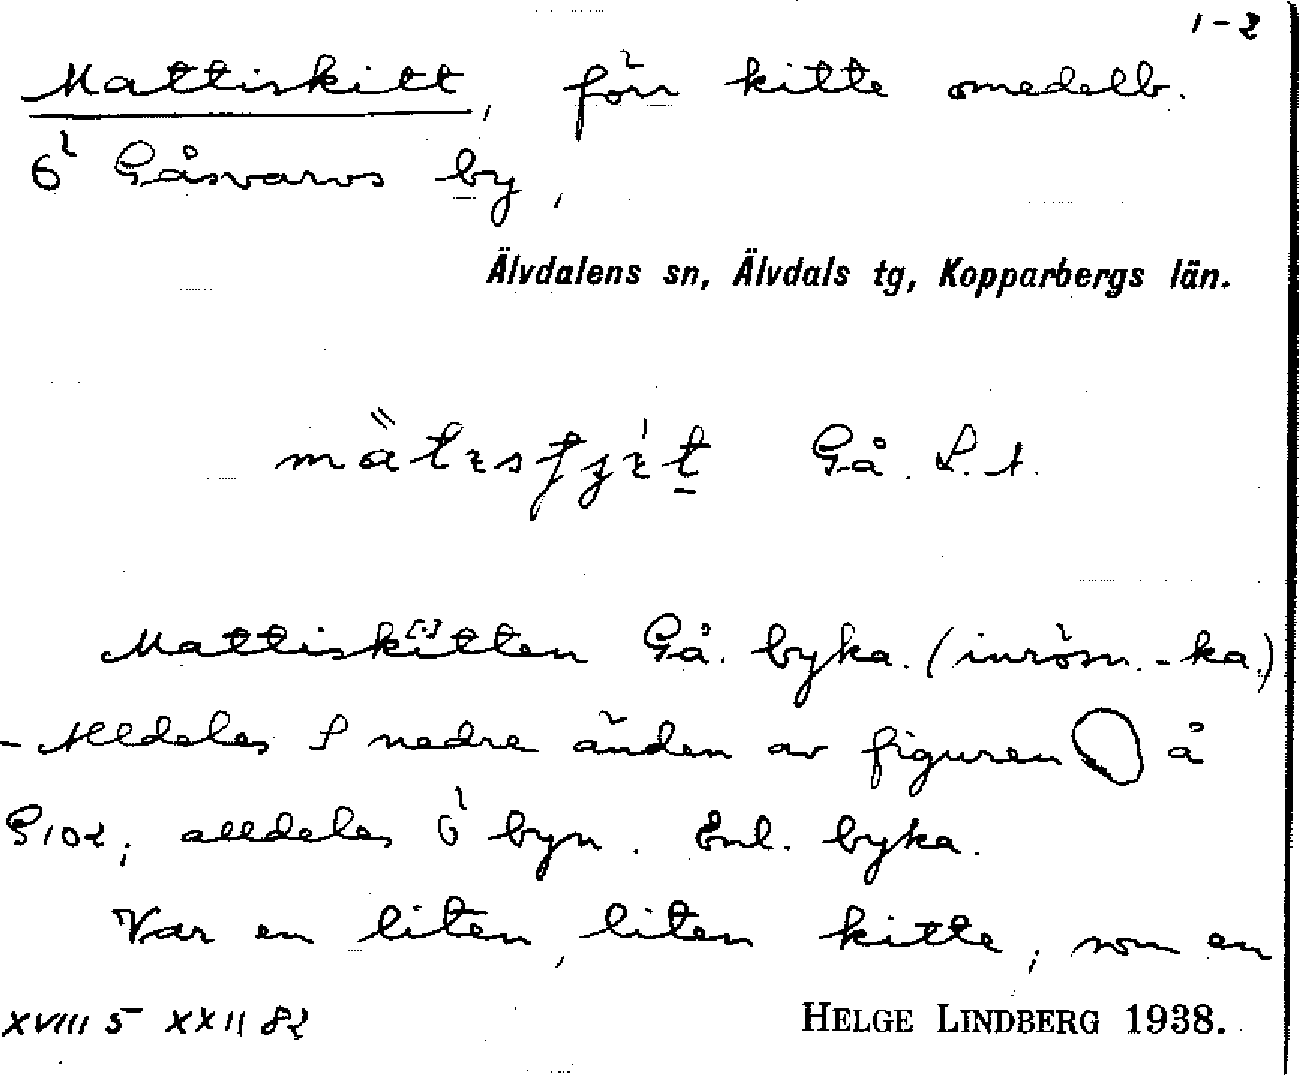 1-2
Mattiskitt, förr kitte omedelb.
Ö Gåsvarvs by,
Älvdalens sn, Älvdals tg, Kopparbergs län.
Gå. S.A.
Mattiskitten Gå. byka. (inrösn.-ka.)
- Alldeles S nedre änden av figuren å
S102, alldeles Ö byn. Enl. byka.
Var en liten, liten kitte, som en
XVIII 5 XXII 82
HELGE LINDBERG 1938.